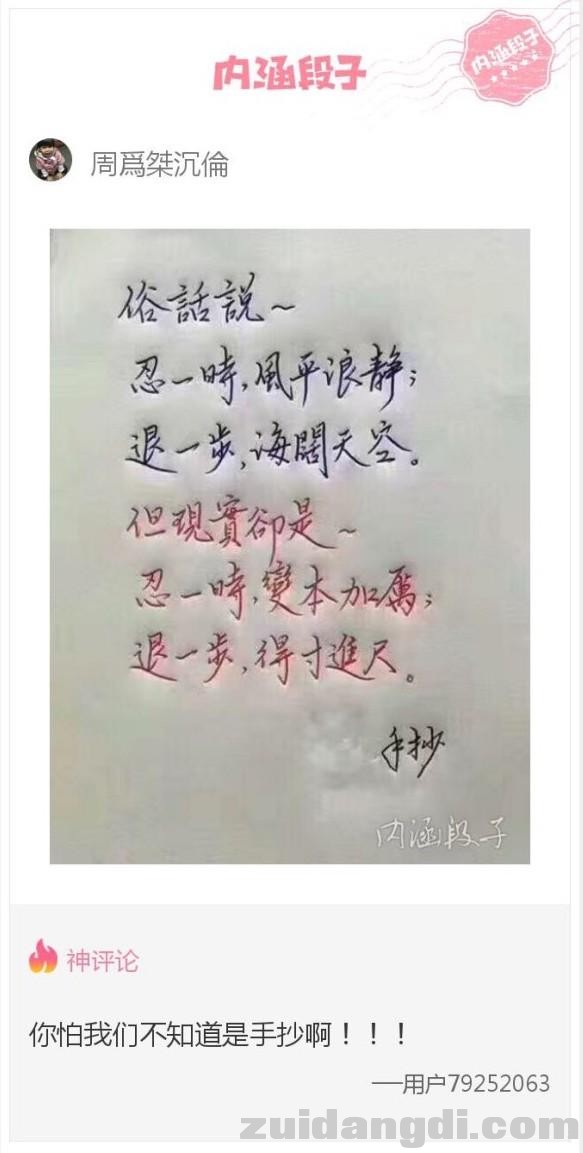 内涵段子
内涵段子
周爲桀沉倫
俗話説~
忍一時,風平浪静;
退一步,海闊天空。
但現實卻是~
忍一時,變本加厲;
退一步,得寸進尺。
手抄
内涵段子
神评论
你怕我们不知道是手抄啊！！！
──用户79252063
zuidangdi.com